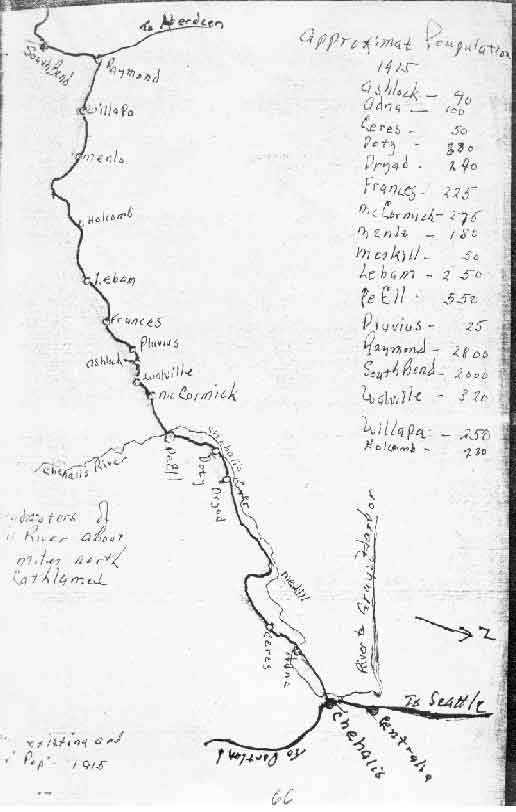 To Aberdeen
South Bend
Raymond
Willapa
menlo
Holcomb
Lebam
Frances
Pluvius
ashlock
Walville
mcCormick
chehalis River
PeEll
Doty
Dryad
chehalis River
River About
miles north
Cathlamet
meskill
Ceres
Adna
River to Grays Harbor
N
To Seattle
Chehalis
Centralia
To Portland
existing and
Pop - 1915
66
Approximat Poupulation
1915
Ashlock - 40
adna - 100
Ceres - 50
Doty - 330
Dryad - 240
Frances - 225
mcCormick - 276
menlo - 180
meskill - 50
Lebam - 250
PeEll - 550
Pluvius - 25
Raymond - 2800
South Bend - 2000
Walville - 320
Willapa - 250
Holcomb - 230